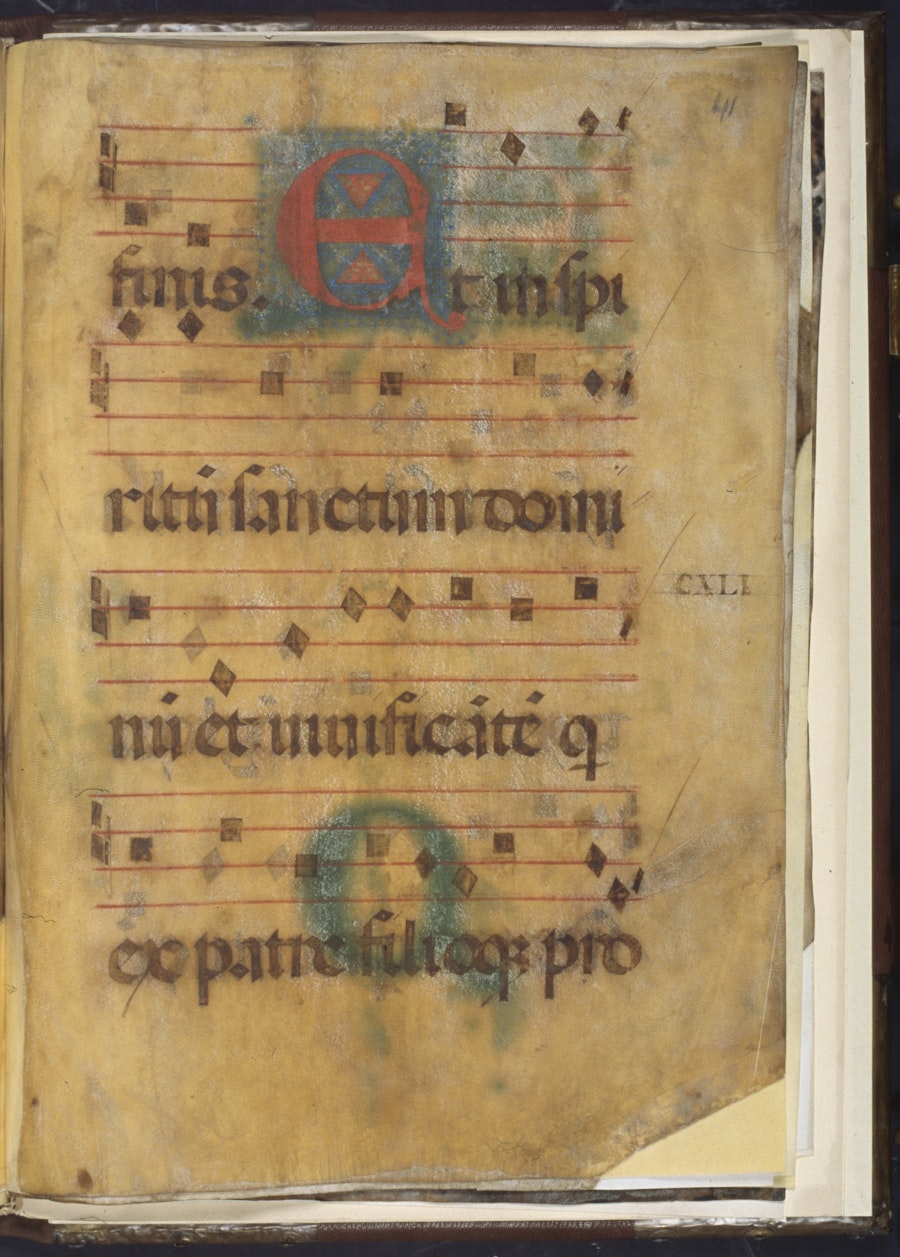 41
finis. Et in spi
ritū sanctum domi
nū et uiuificātē q
CXLI
ex patre filioqꝫ pro